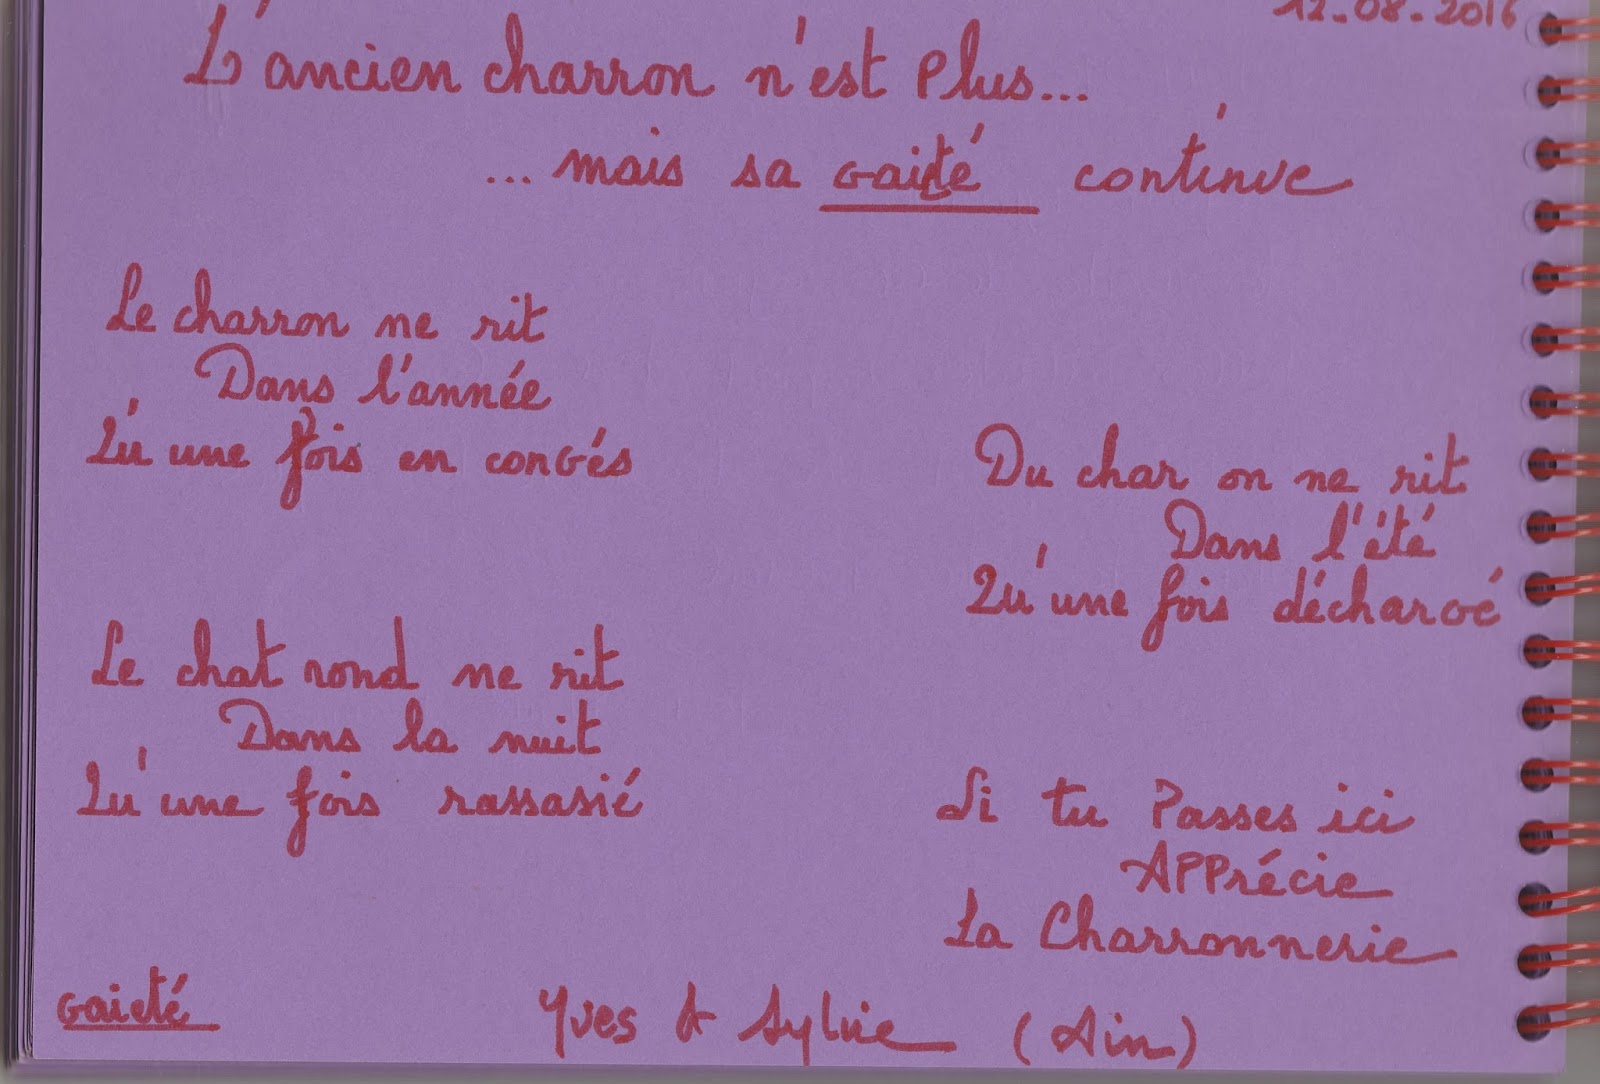 12-08-2016
L'ancien charron n'est Plus...
... mais sa gaieté continue
Le charron ne rit
Dans l'année
Qu'une fois en congés
Du char on ne rit
Dans l'été
Qu'une fois déchargé
Le chat rond ne rit
Dans la nuit
Qu'une fois rassasié
Si tu Passes ici
APPrécie
La Charronnerie
gaieté
Yves & Sylvie (Ain)